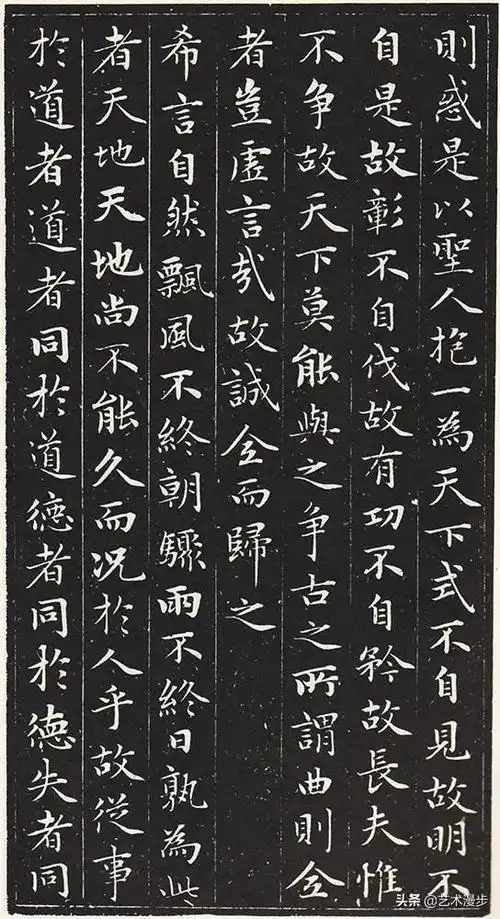 則惑是以聖人抱一為天下式不自見故明不
自是故彰不自伐故有功不自矜故長夫惟
不争故天下莫能與之争古之所謂曲則全
者豈虛言哉故誠全而歸之
希言自然飄風不終朝驟雨不終日孰為此
者天地天地尚不能久而况於人乎故從事
於道者道者同於道德者同於德失者同
头条 @艺术漫步